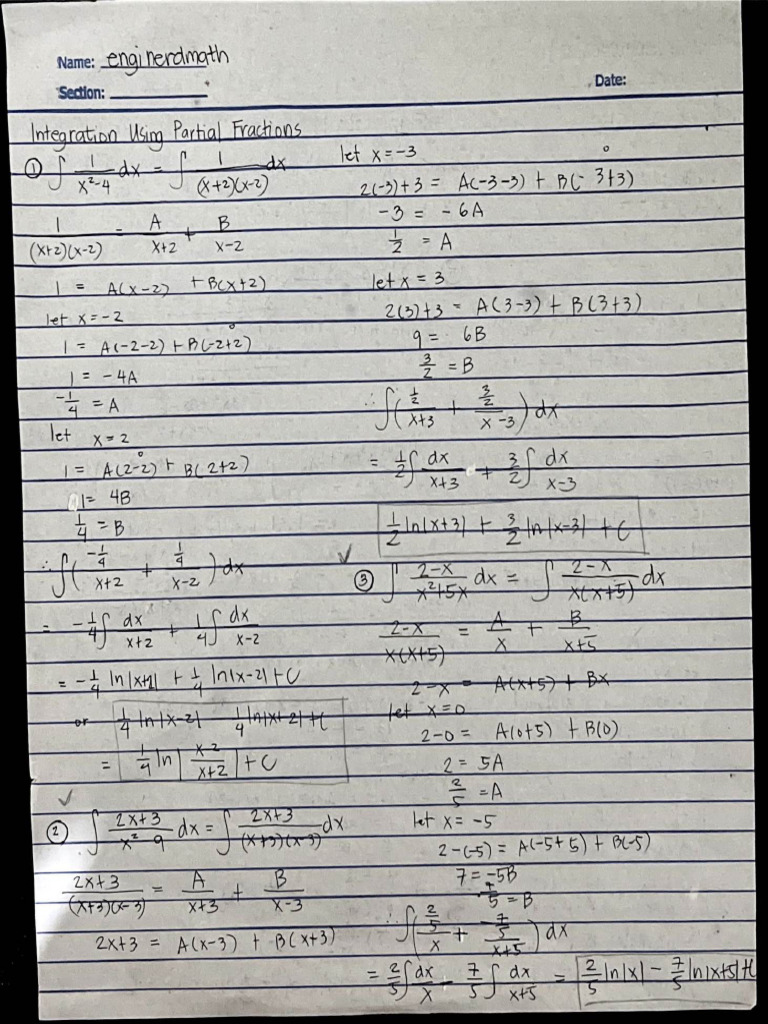 Name: enginerdmath
Section:
Date:
Integration Using Partial Fractions
① ∫ 1/(x²-4) dx = ∫ 1/((x+2)(x-2)) dx
1/((x+2)(x-2)) = A/(x+2) + B/(x-2)
1 = A(x-2) + B(x+2)
let x=-2
1 = A(-2-2) + B(-2+2) 0
1 = -4A
-1/4 = A
let x=2
1 = A(2-2) 0 + B(2+2)
1 = 4B
1/4 = B
∴ ∫( (-1/4)/(x+2) + (1/4)/(x-2) ) dx
= -1/4 ∫ dx/(x+2) + 1/4 ∫ dx/(x-2)
= -1/4 ln|x+2| + 1/4 ln|x-2| + C
or 1/4 ln|x-2| - 1/4 ln|x+2| + C
= 1/4 ln| (x-2)/(x+2) | + C
② ∫ (2x+3)/(x²-9) dx = ∫ (2x+3)/((x+3)(x-3)) dx
(2x+3)/((x+3)(x-3)) = A/(x+3) + B/(x-3)
2x+3 = A(x-3) + B(x+3)
let x=-3
2(-3)+3 = A(-3-3) + B(-3+3) 0
-3 = -6A
1/2 = A
let x=3
2(3)+3 = A(3-3) + B(3+3)
9 = 6B
3/2 = B
∴ ∫( (1/2)/(x+3) + (3/2)/(x-3) ) dx
= 1/2 ∫ dx/(x+3) + 3/2 ∫ dx/(x-3)
1/2 ln|x+3| + 3/2 ln|x-3| + C
③ ∫ (2-x)/(x²+5x) dx = ∫ (2-x)/(x(x+5)) dx
(2-x)/(x(x+5)) = A/x + B/(x+5)
2-x = A(x+5) + Bx
let x=0
2-0 = A(0+5) + B(0)
2 = 5A
2/5 = A
let x=-5
2-(-5) = A(-5+5) + B(-5)
7 = -5B
-7/5 = B
∴ ∫( (2/5)/x + (-7/5)/(x+5) ) dx
= 2/5 ∫ dx/x - 7/5 ∫ dx/(x+5) = 2/5 ln|x| - 7/5 ln|x+5| + C